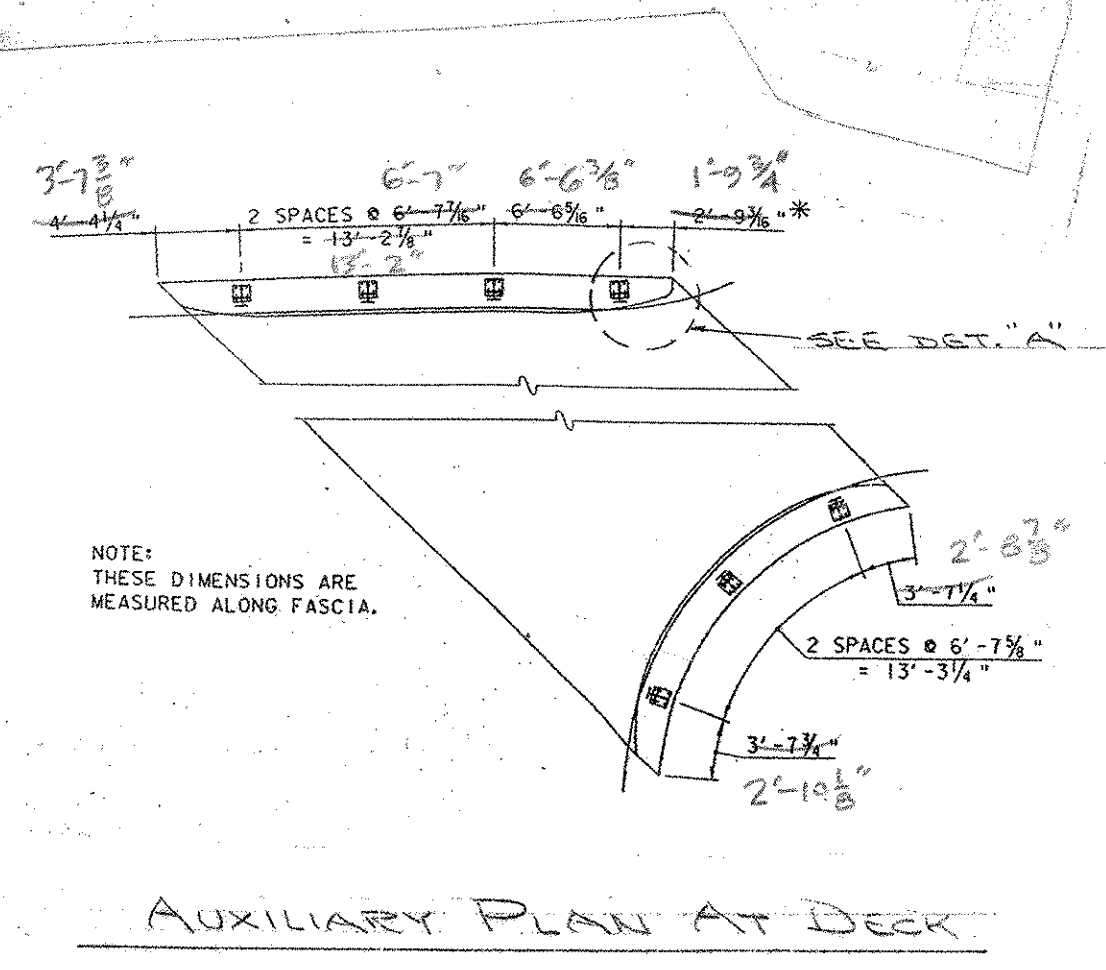 3'-7 3/8" 6'-7" 6'-6 3/8" 1'-9 3/4"
4'-4 1/4" 2 SPACES @ 6'-7 7/16" 6'-6 5/16" 2'-9 3/16" *
= 13'-2 7/8"
13'-2"
SEE DET. "A"
NOTE:
THESE DIMENSIONS ARE
MEASURED ALONG FASCIA.
2'-8 7/8"
3'-7 1/4"
2 SPACES @ 6'-7 5/8"
= 13'-3 1/4"
3'-7 3/4"
2'-10 1/8"
AUXILIARY PLAN AT DECK